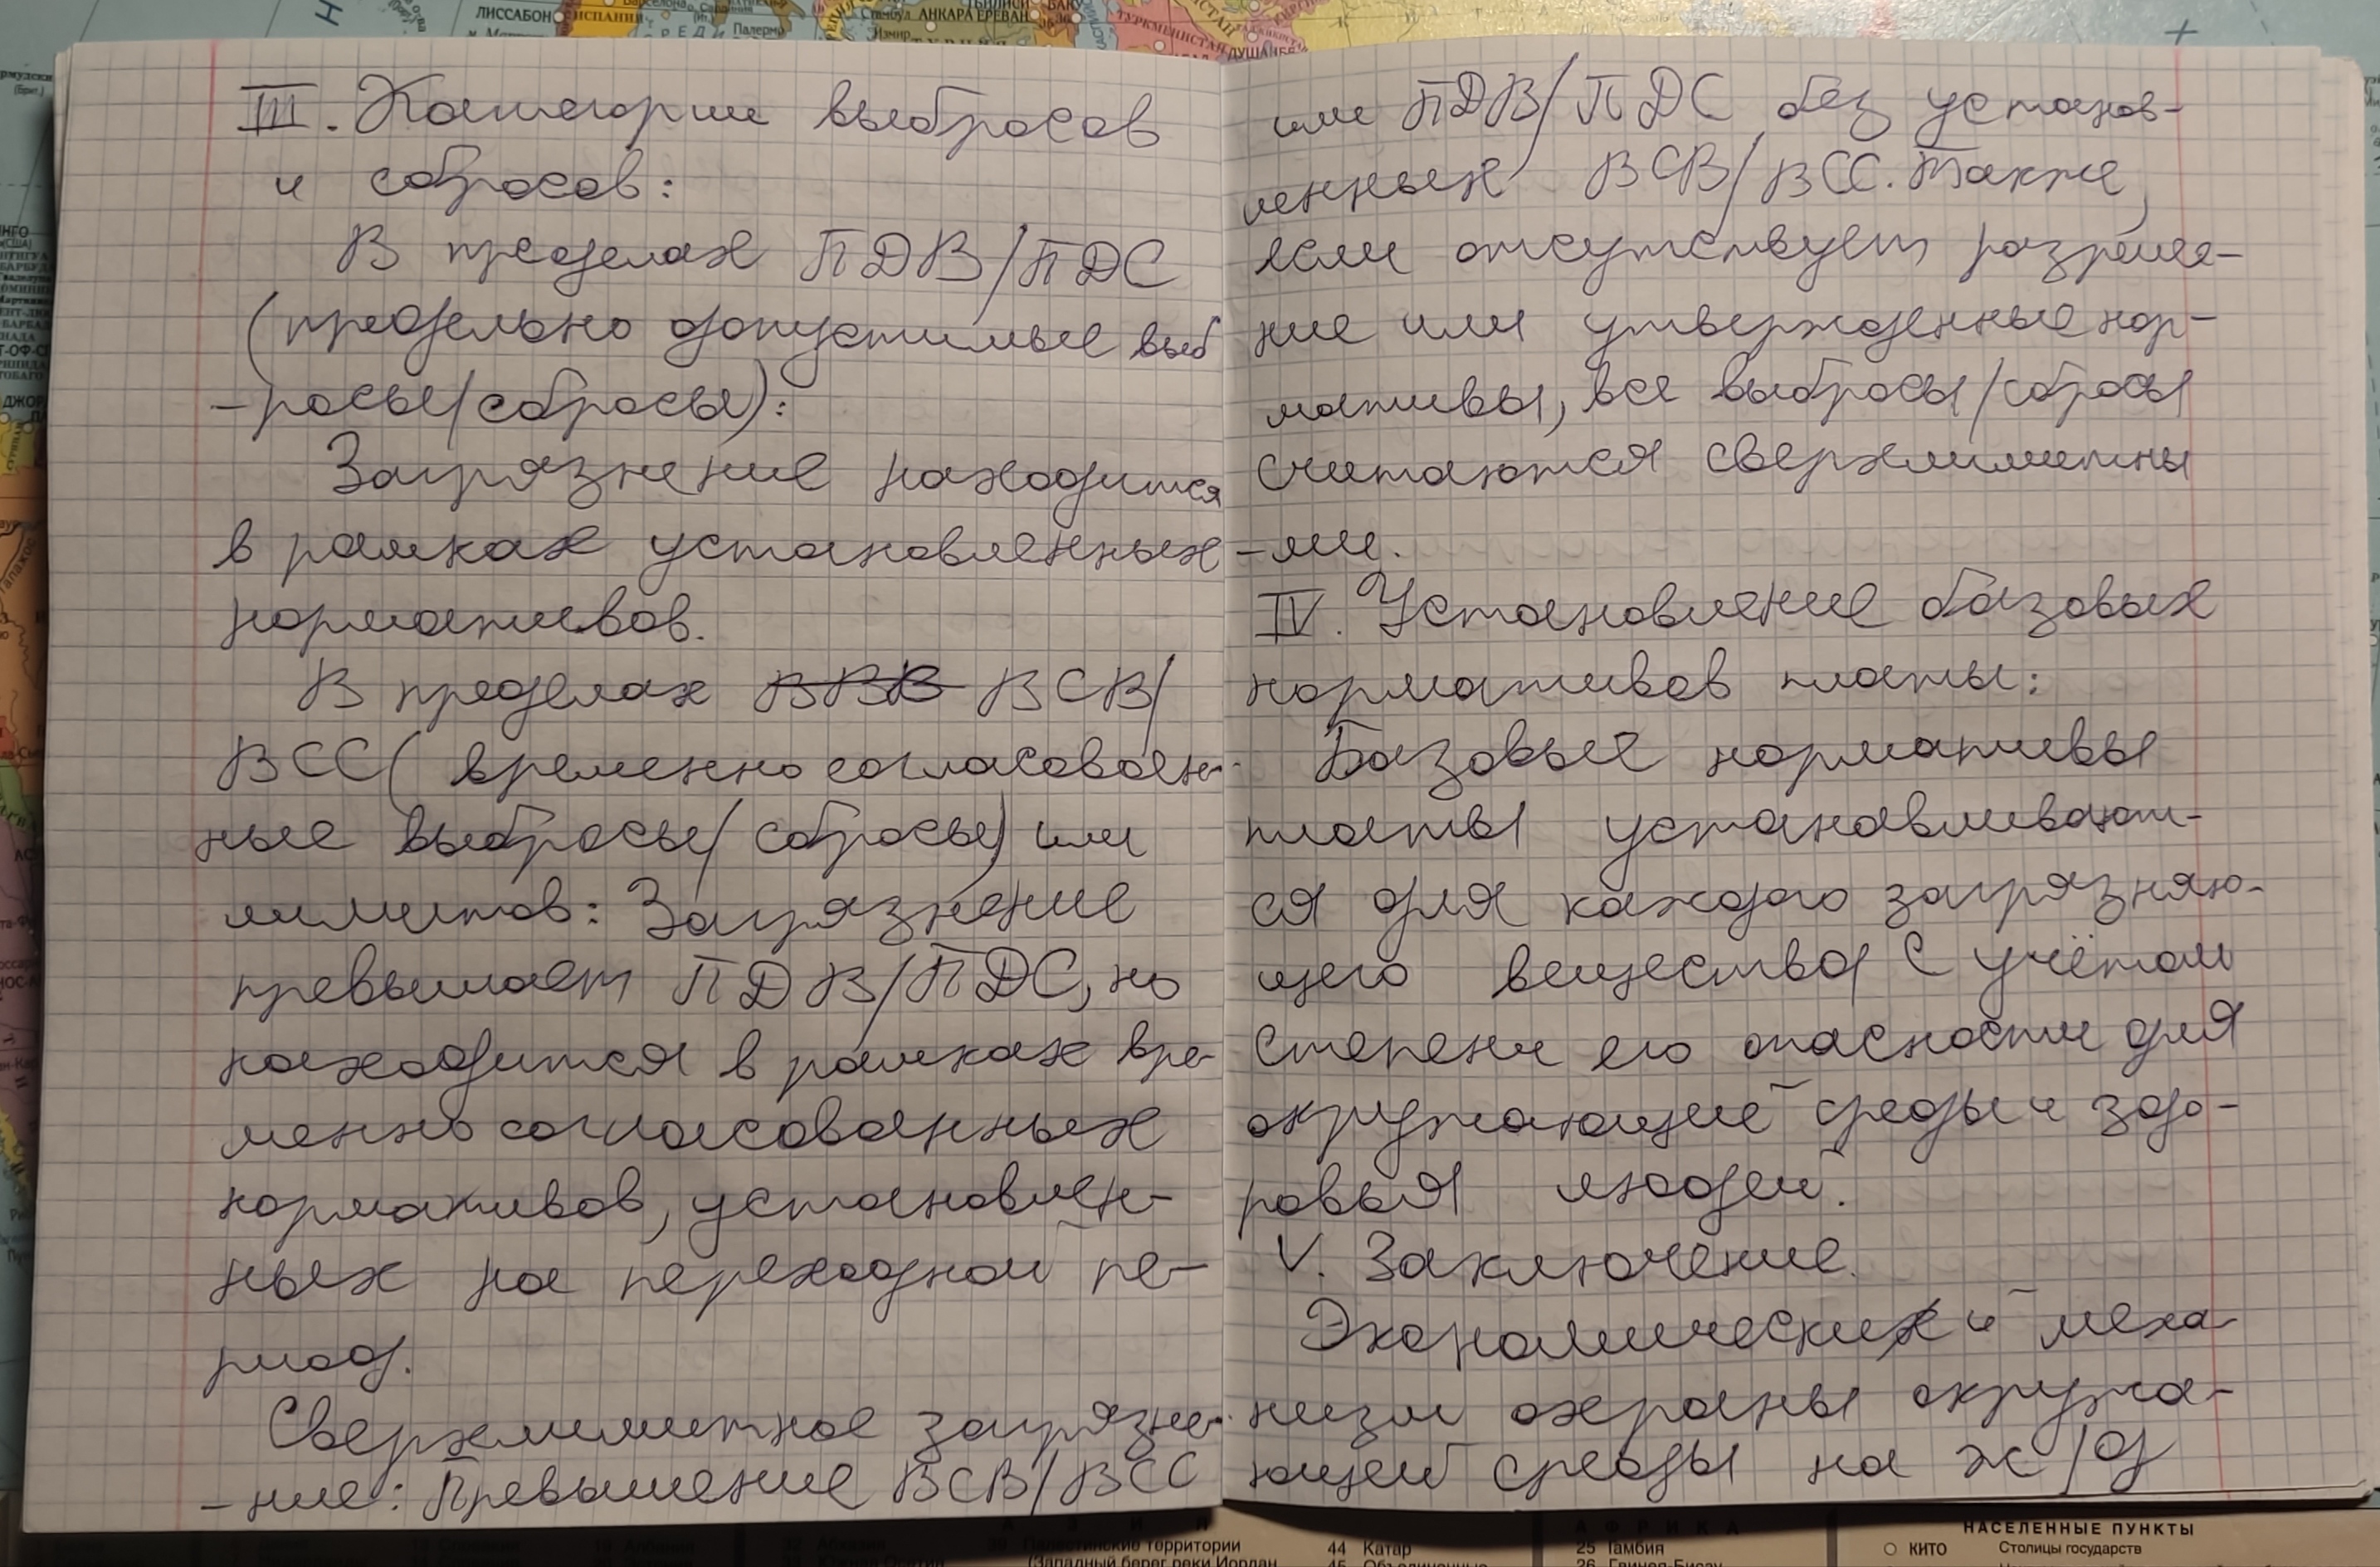 III. Категории выбросов
и сбросов:
В пределах ПДВ/ПДС
(предельно допустимые выб
-росы/сбросы):
Загрязнение находится
в рамках установленных
нормативов.
В пределах ВВВ ВСВ/
ВСС (временно согласован-
ные выбросы/сбросы) или
лимитов: Загрязнение
превышает ПДВ/ПДС, но
находится в рамках вре-
менно согласованных
нормативов, установлен-
ных на переходной пе-
риод.
Сверхлимитное загрязне-
-ние: Превышение ВСВ/ВСС
или ПДВ/ПДС без установ-
ленных ВСВ/ВСС. Также,
если отсутствует разреше-
ние или утвержденные нор-
мативы, все выбросы/сбросы
считаются сверхлимитны
-ми.
IV. Установление базовых
нормативов платы:
Базовые нормативы
платы устанавливают-
ся для каждого загрязняю-
щего вещества с учётом
степени его опасности для
окружающей среды и здо-
ровья людей.
V. Заключение.
Экономический меха-
низм охраны окружа-
ющей среды на ж/д
ЛИССАБОН
ИСПАНИЯ
Палермо
Измир
АНКАРА
ЕРЕВАН
ТБИЛИСИ
БАКУ
ТУРКМЕНИСТАН
ДУШАНБЕ
44 Катар
25 Гамбия
НАСЕЛЕННЫЕ ПУНКТЫ
КИТО Столицы государств